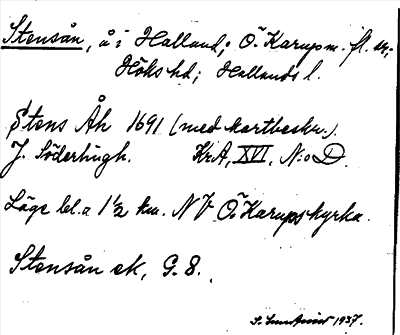 Stensån, å i Halland; Ö. Karups m. fl. sn;
Höks hd; Hallands l.
Stens Åh 1691 (med kartbeskr.).
J. Söderhugh. KrA, XVI, N:o D.
Läge bl.a 1 1/2 km. NV Ö. Karups kyrka.
Stensån ek, G. 8.
1937.